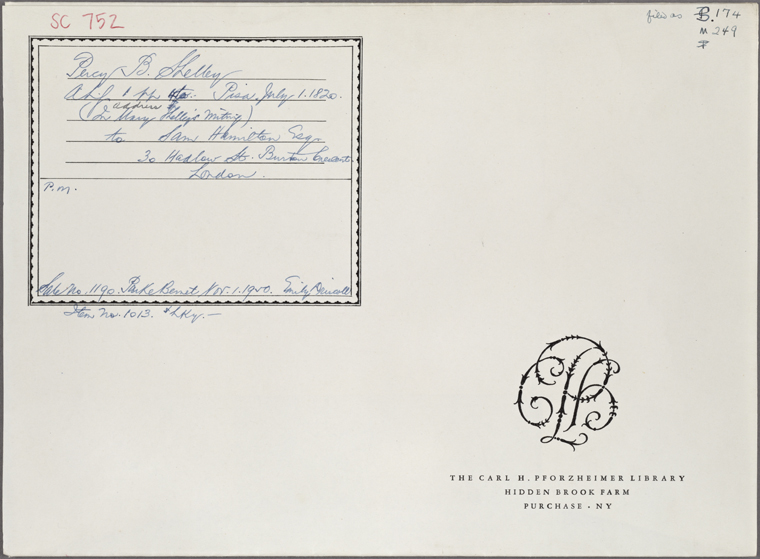 SC 752
filed as B. 174
M 249
Percy B. Shelley
1 pp Pisa, July 1. 1820.
address
(In Mary Shelley's writing)
to Sam Hamilton Esq.
30 Hadlow St. Burton Crescent.
London.
P.M.
Sale No. 1190. Parke Bernet, Nov. 1. 1950. Emily Driscoll
Item No. 1013.
THE CARL H. PFORZHEIMER LIBRARY
HIDDEN BROOK FARM
PURCHASE • NY